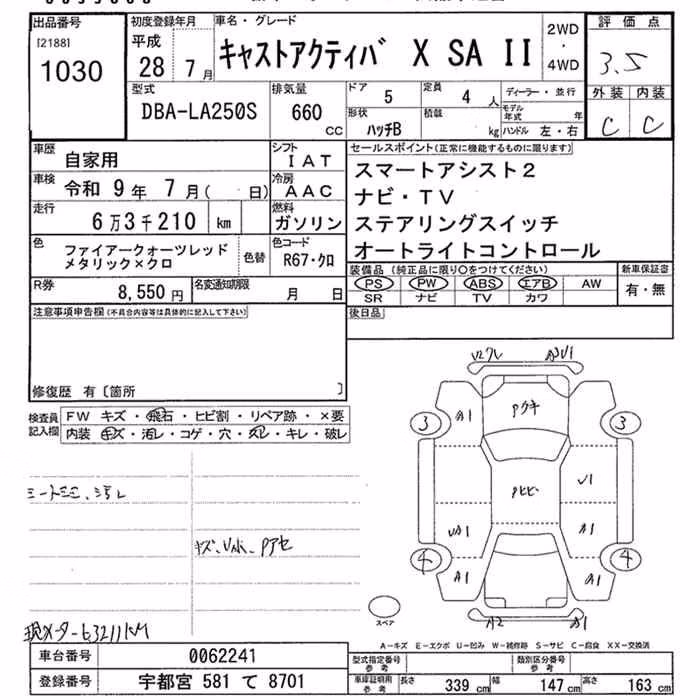 出品番号
[2188]
1030
初度登録年月
平成
28 7月
車名・グレード
キャストアクティバ X SA II
2WD
・
4WD
評価点
3.5
外装 内装
C C
型式
DBA-LA250S
排気量
660
CC
ドア
5
定員
4 人
ディーラー・並行
形状
ハッチB
積載
kg
モデル年式 年
ハンドル 左・右
車歴
自家用
シフト
IAT
車検
令和 9年 7月( 日)
冷房
AAC
走行
6万3千210 km
燃料
ガソリン
色
ファイアークォーツレッド
メタリック×クロ
色替
色コード
R67・クロ
R券
8,550円
名変通知期限
月 日
セールスポイント(正常に機能するものに限ります)
スマートアシスト2
ナビ・TV
ステアリングスイッチ
オートライトコントロール
装備品(純正品に限り○をつけてください)
PS PW ABS エアB AW
SR ナビ TV カワ
新車保証書
有・無
後日品
注意事項申告欄(不具合内容等は具体的に記入して下さい)
修復歴 有〔箇所 〕
検査員
記入欄
FW キズ・飛石・ヒビ割・リペア跡・×要
内装 キズ・汚レ・コゲ・穴・スレ・キレ・破レ
A1
Pクキ
3
3
Pヒビ
U1
A1
4
4
A1
A1
A2
スペア
現メーター63211KM
A-キズ E-エクボ U-凹み W-補修跡 S-サビ C-腐食 XX-交換済
車台番号
0062241
登録番号
宇都宮 581 て 8701
型式指定番号
参考
類別区分番号
参考
車庫証明用
参考
長さ 339 cm 幅 147 cm 高さ 163 cm